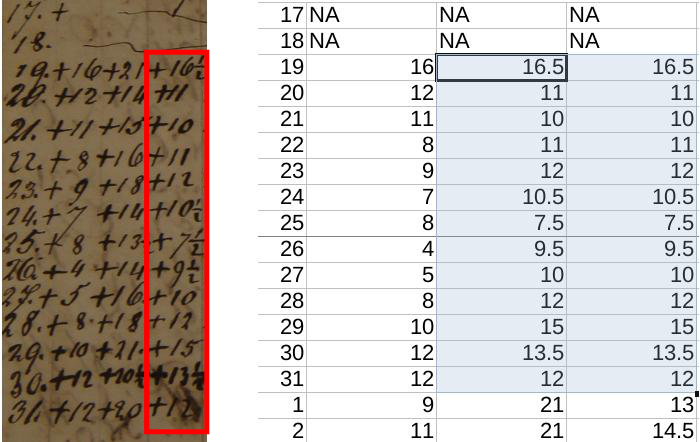 17. +
18.
19. + 16 + 21 + 16½
20. + 12 + 14 + 11
21. + 11 + 15 + 10
22. + 8 + 16 + 11
23. + 9 + 18 + 12
24. + 7 + 14 + 10½
25. + 8 + 13 + 7½
26. + 4 + 14 + 9½
27. + 5 + 16. + 10
28. + 8. + 18 + 12
29. + 10 + 21. + 15
30. + 12 + + 13½
31. + 12 + 20 + 12
17 NA NA NA
18 NA NA NA
19 16 16.5 16.5
20 12 11 11
21 11 10 10
22 8 11 11
23 9 12 12
24 7 10.5 10.5
25 8 7.5 7.5
26 4 9.5 9.5
27 5 10 10
28 8 12 12
29 10 15 15
30 12 13.5 13.5
31 12 12 12
1 9 21 13
2 11 21 14.5